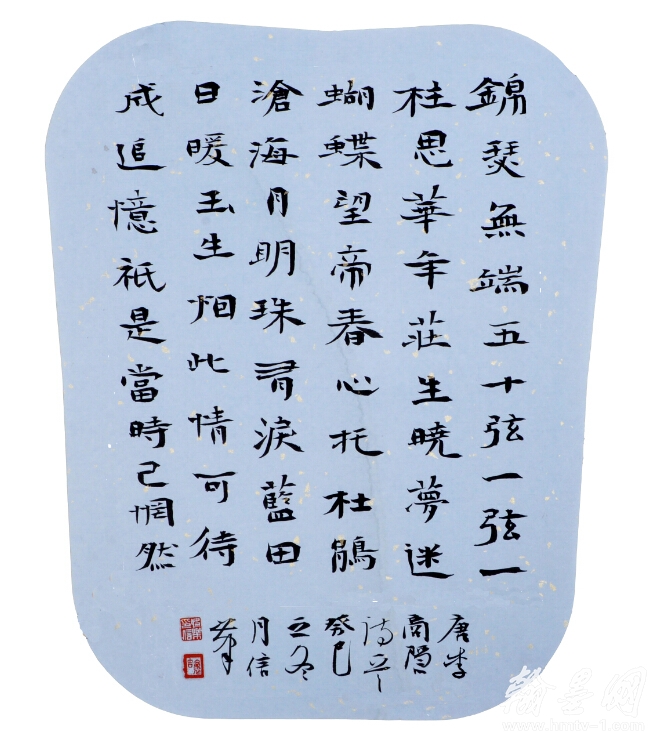 錦瑟無端五十弦一弦一
柱思華年莊生曉夢迷
蝴蝶望帝春心托杜鵑
滄海月明珠有淚藍田
日暖玉生烟此情可待
成追憶祇是當時已惘然
唐李
商隱
詩
癸巳
之冬
月信
翰墨网
www.hmtv-1.com